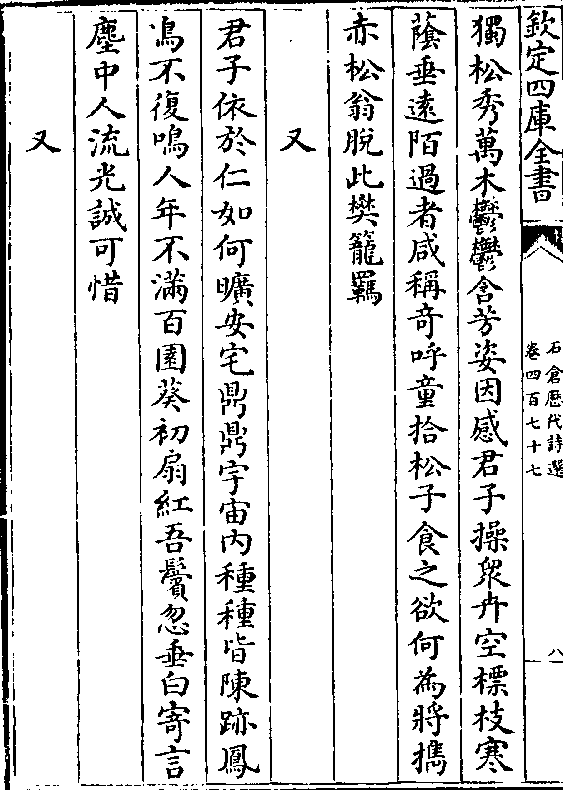 欽定四庫全書
石倉歷代詩選
卷四百七十七
八
獨松秀萬木鬱鬱含芳姿因感君子操眾卉空標枝寒
蔭垂遠陌過者咸稱奇呼童拾松子食之欲何為將攜
赤松翁脫此樊籠羈
又
君子依於仁如何曠安宅鼎鼎宇宙內種種皆陳跡鳳
鳥不復鳴人年不滿百園葵初扇紅吾鬢忽垂白寄言
塵中人流光誠可惜
又